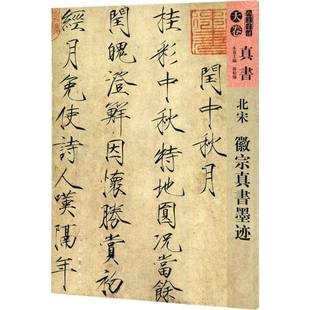 天卷
真書
北宋
徽宗真書墨迹
閏中秋月
桂彩中秋特地圓況當餘
閏魄澄鮮因懷勝賞初
經月免使詩人歎隔年